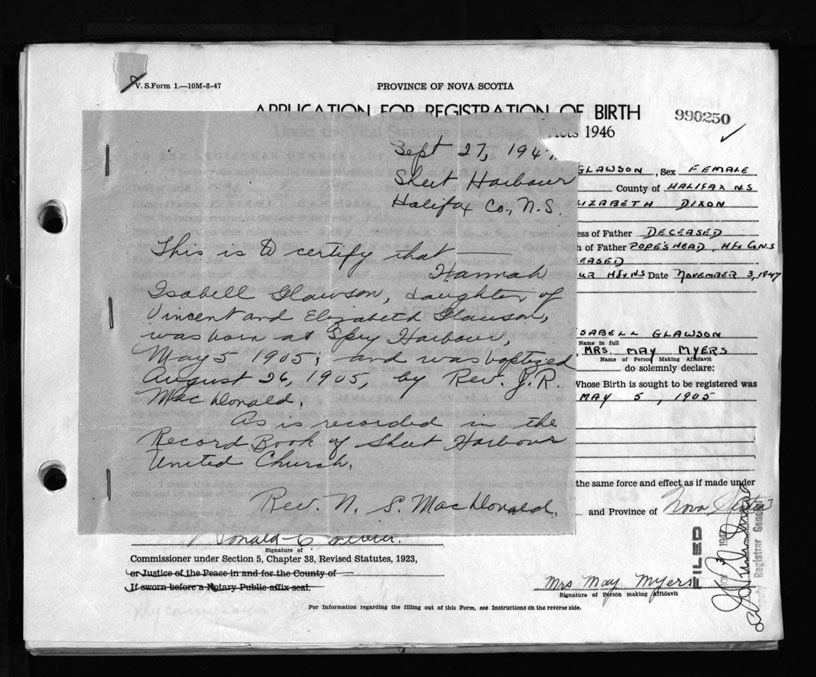 V. S. Form 1.—10M-8-47
PROVINCE OF NOVA SCOTIA
APPLICATION FOR REGISTRATION OF BIRTH
990250
Acts 1946
Sept 27, 1947
Sheet Harbour
Halifax Co., N.S.
This is to certify that —
Hannah
Isabell Glawson, daughter of
Vincent and Elizabeth Glawson,
was born at Spry Harbour,
May 5 1905; and was baptized
August 26, 1905, by Rev. J. R.
MacDonald.
As is recorded in the
Record Book of Sheet Harbour
United Church.
Rev. N. S. MacDonald.
GLAWSON, Sex FEMALE
County of HALIFAX NS
IZABETH DIXON
ess of Father DECEASED
h of Father POPE'S HEAD, Hfx Co N.S
EASED
UR Hfx NS Date NOVEMBER 3, 1947
SABELL GLAWSON
Name in full
MRS. MAY MYERS
Name of Person Making Affidavit
do solemnly declare:
Whose Birth is sought to be registered was
MAY 5, 1905
the same force and effect as if made under
and Province of Nova Scotia
Donald
Signature of
Commissioner under Section 5, Chapter 38, Revised Statutes, 1923,
or Justice of the Peace in and for the County of
If sworn before a Notary Public affix seal.
Mrs May Myers
Signature of Person making affidavit
For Information regarding the filling out of this Form, see Instructions on the reverse side.
FILED
Registrar General